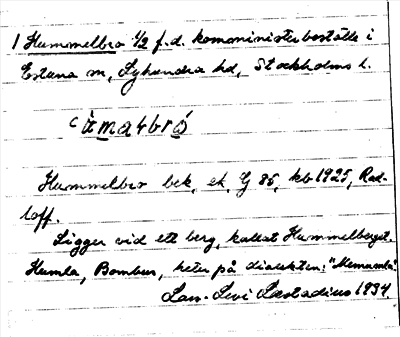 1 Hummelbro 1/2 f.d. komministerboställe i
Estuna sn, Lyhundra hd, Stockholms l.
Hummelbro bek, ek, G 85, kb 1925, Rad-
loff.
Ligger vid ett berg, kallat Hummelberget.
Humla, Bombus, heter på dialekten:
Lars-Levi Læstadius 1934.